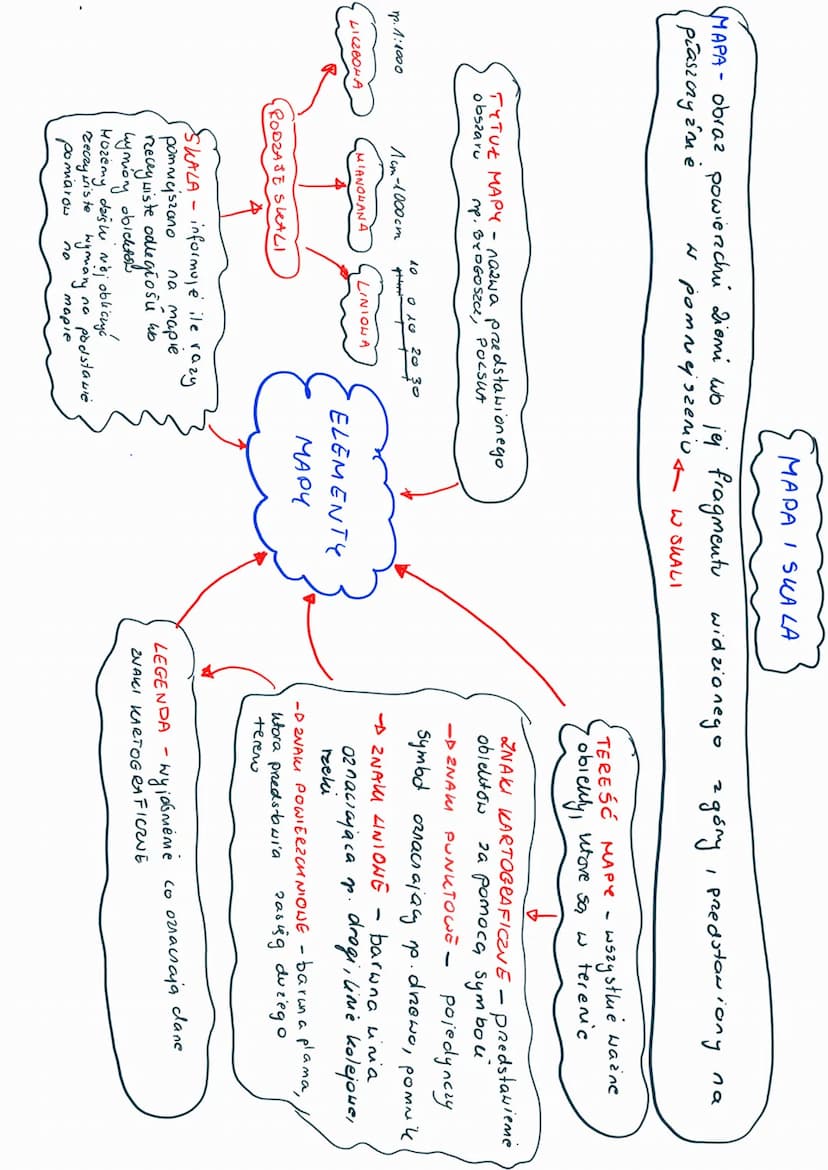 MAPA I SKALA
MAPA - obraz powierzchni Ziemi lub jej fragmentu widzianego z góry, przedstawiony na
płaszczyźnie w pomniejszeniu ← W SKALI
TYTUŁ MAPY - nazwa przedstawionego
obszaru np. BYDGOSZCZ, POLSKA
TEREŚĆ MAPY - wszystkie ważne
obiekty, które są w terenie
ELEMENTY
MAPY
np. 1:1000
LICZBOWA
1cm-1000cm
MIANOWANA
10 0 10 20 30
LINIOWA
RODZAJE SKALI
SKALA - informuje ile razy
pomniejszono na mapie
rzeczywiste odległości lub
wymiary obiektów
Możemy dzięki niej obliczyć
rzeczywiste wymiary na podstawie
pomiarów na mapie
ZNAKI KARTOGRAFICZNE - przedstawienie
obiektów za pomocą symboli
→ ZNAKI PUNKTOWE - pojedynczy
symbol oznaczający np. drzewo, pomnik
→ ZNAKI LINIOWE - barwna linia
oznaczająca np. drogi, linie kolejowe,
rzeki
→ ZNAKI POWIERZCHNIOWE - barwna plama,
która przedstawia zasięg dużego
terenu
LEGENDA - wyjaśnienie co oznaczają dane
ZNAKI KARTOGRAFICZNE